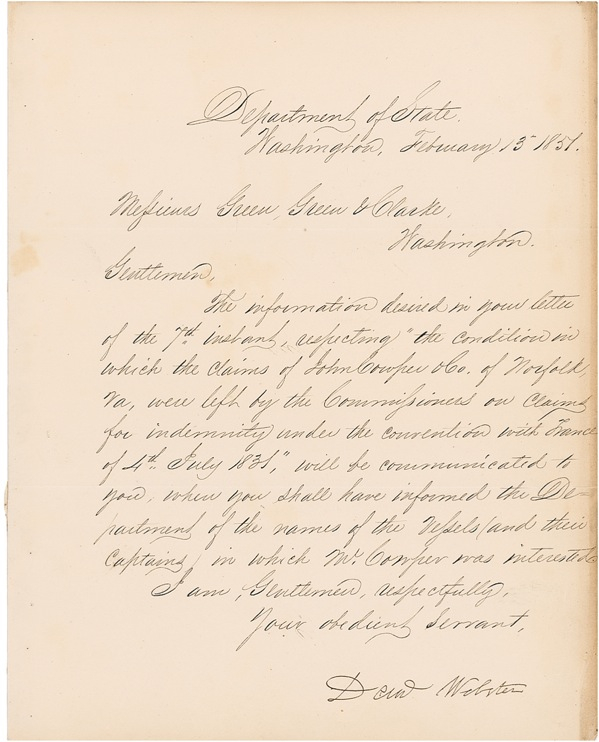 Department of State.
Washington, February 13 1851.
Messieurs Green, Green & Clarke,
Washington.
Gentlemen,
The information desired in your letter
of the 7th instant, respecting "the condition in
which the claims of John Cowper & Co. of Norfolk,
Va, were left by the Commissioners on claims
for indemnity under the convention with France
of 4th July 1831," will be communicated to
you, when you shall have informed the De-
partment of the names of the Vessels (and their
Captains) in which Mr. Cowper was interested.
I am, Gentlemen, respectfully,
Your obedient Servant,
Danl Webster